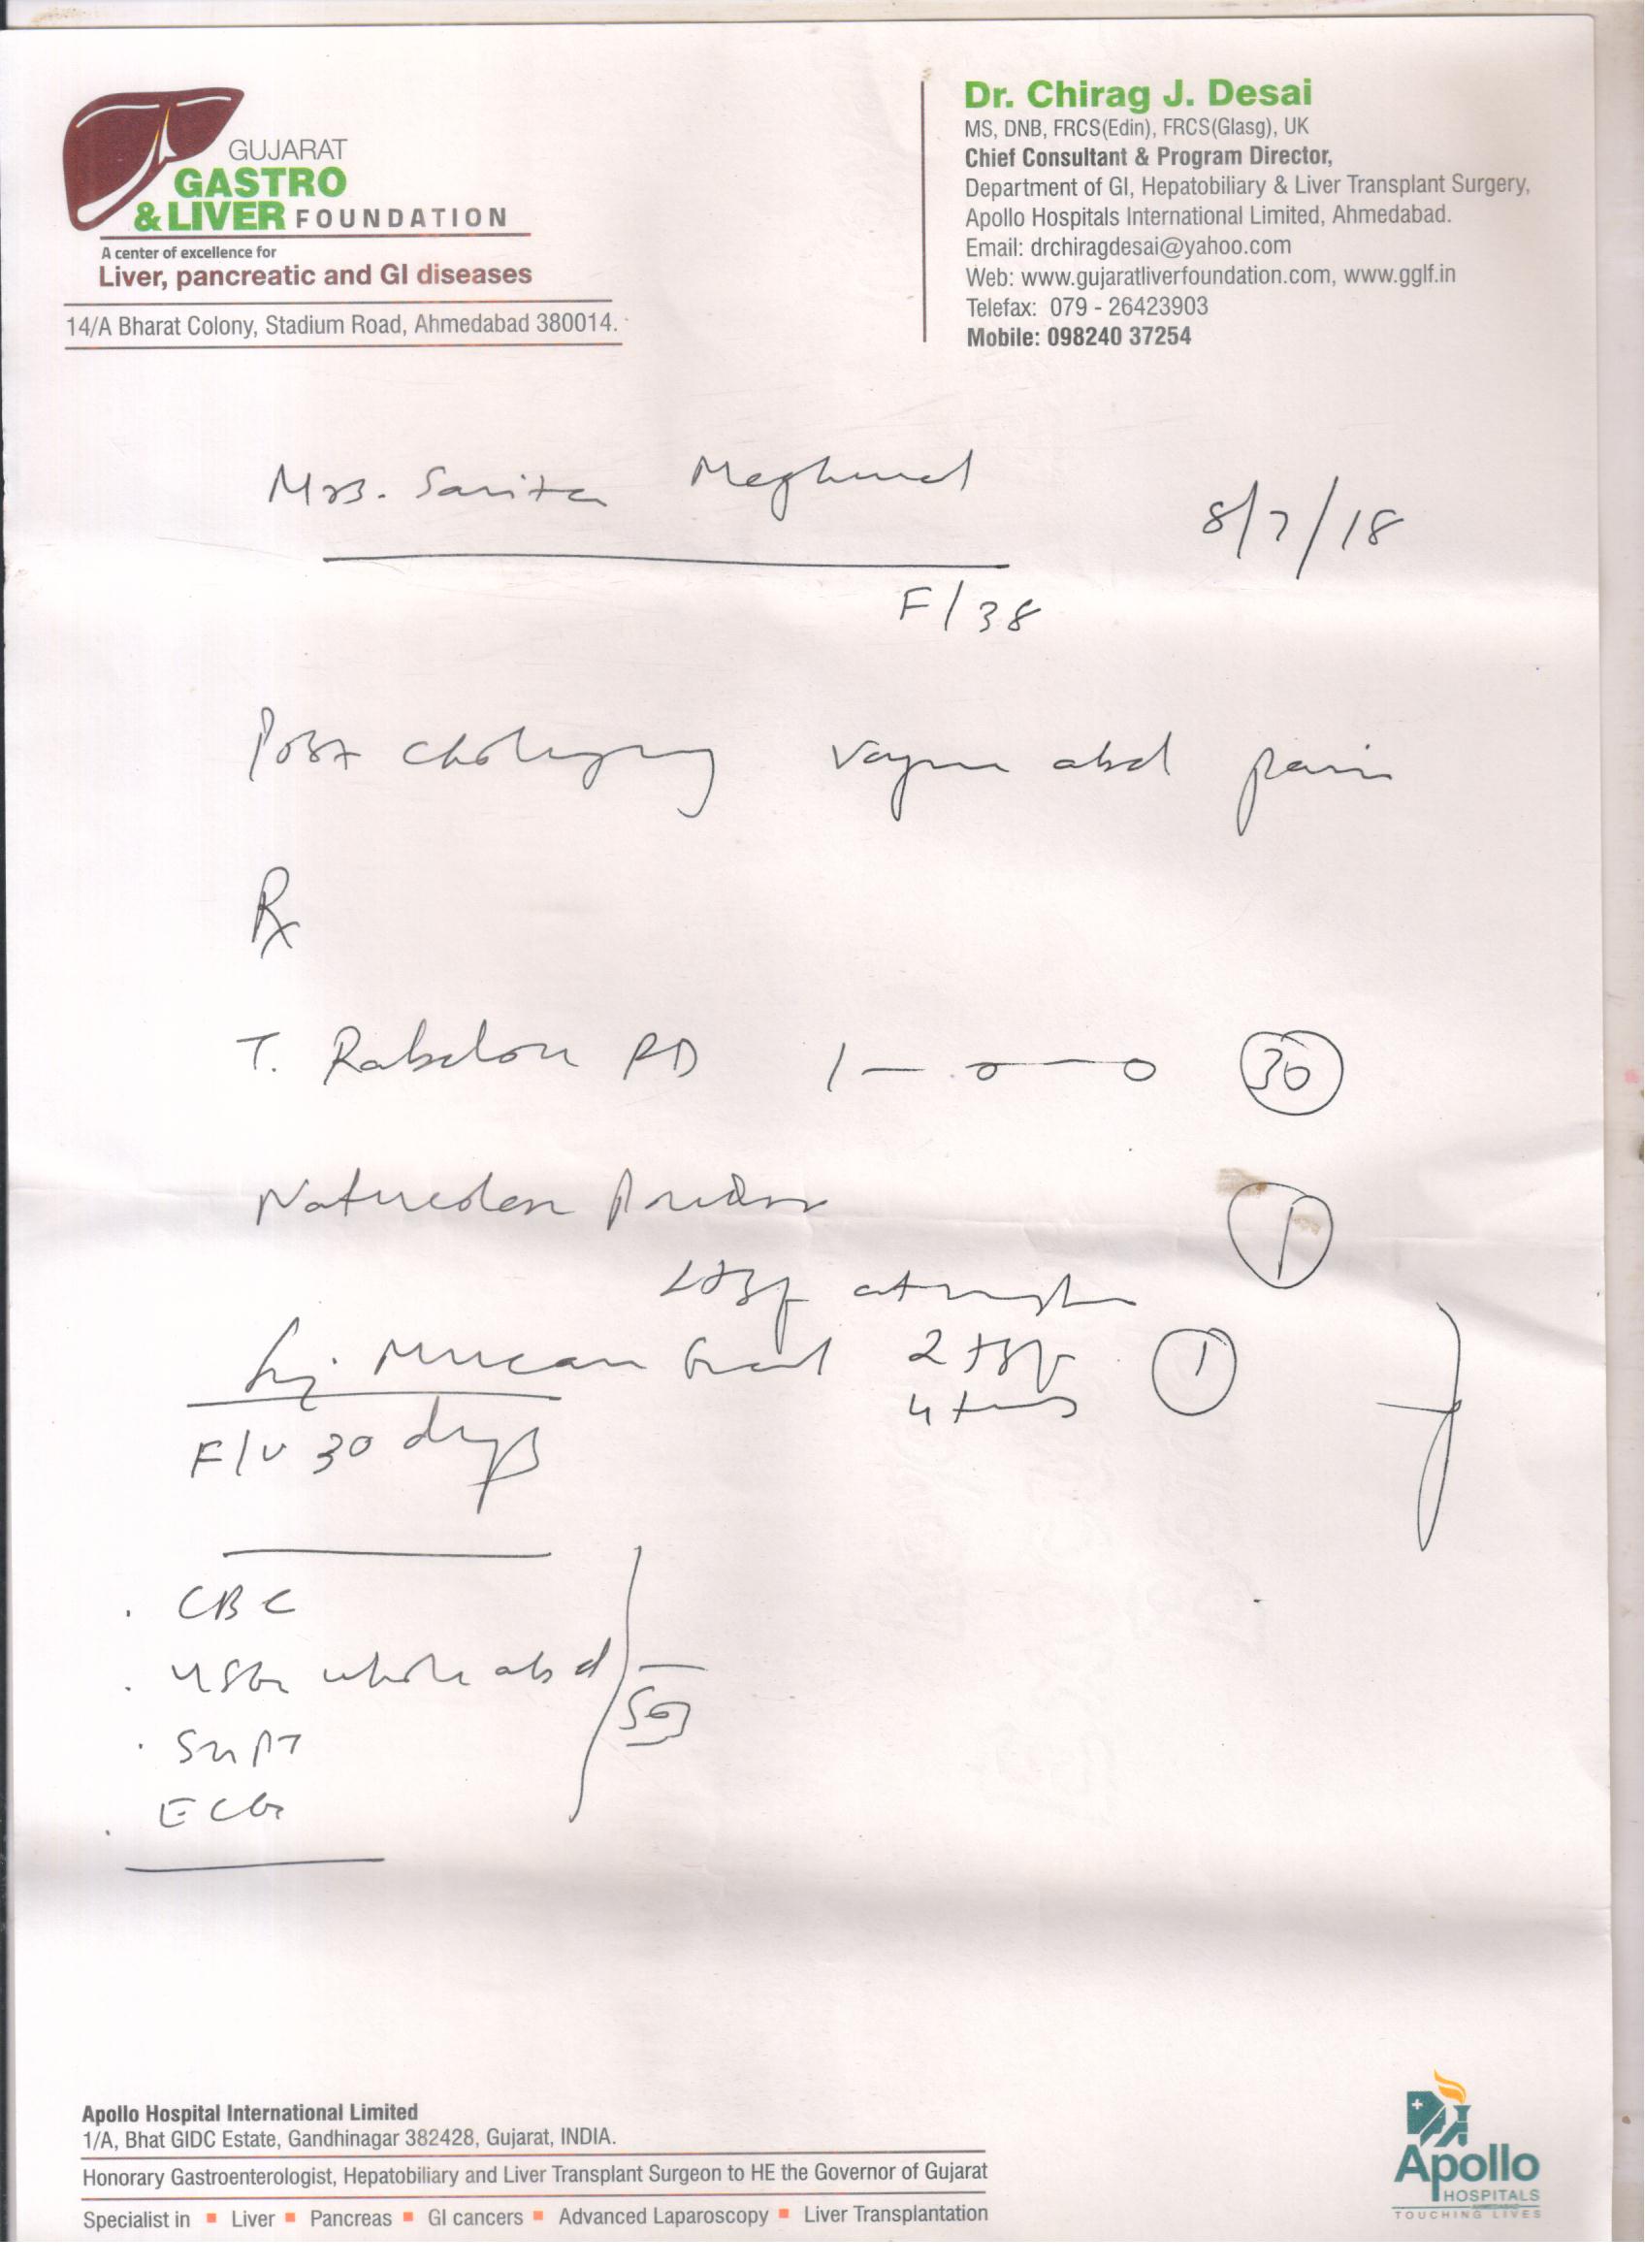 GUJARAT
GASTRO
& LIVER FOUNDATION
A center of excellence for
Liver, pancreatic and GI diseases
14/A Bharat Colony, Stadium Road, Ahmedabad 380014.
Dr. Chirag J. Desai
MS, DNB, FRCS(Edin), FRCS(Glasg), UK
Chief Consultant & Program Director,
Department of GI, Hepatobiliary & Liver Transplant Surgery,
Apollo Hospitals International Limited, Ahmedabad.
Email: drchiragdesai@yahoo.com
Web: www.gujaratliverfoundation.com, www.gglf.in
Telefax: 079 - 26423903
Mobile: 098240 37254
Mrs. Sarita
8/7/18
F/38
Post vague abd pain
Rx
T. RD 1 — 0 — 0 30
Powder 1
at night
2 tsp 1
4 times
F/U 30 days
. CBC
. USG whole abd
. SGPT
. ECG
Apollo Hospital International Limited
1/A, Bhat GIDC Estate, Gandhinagar 382428, Gujarat, INDIA.
Honorary Gastroenterologist, Hepatobiliary and Liver Transplant Surgeon to HE the Governor of Gujarat
Specialist in ▪ Liver ▪ Pancreas ▪ GI cancers ▪ Advanced Laparoscopy ▪ Liver Transplantation
Apollo
HOSPITALS
AHMEDABAD
TOUCHING LIVES